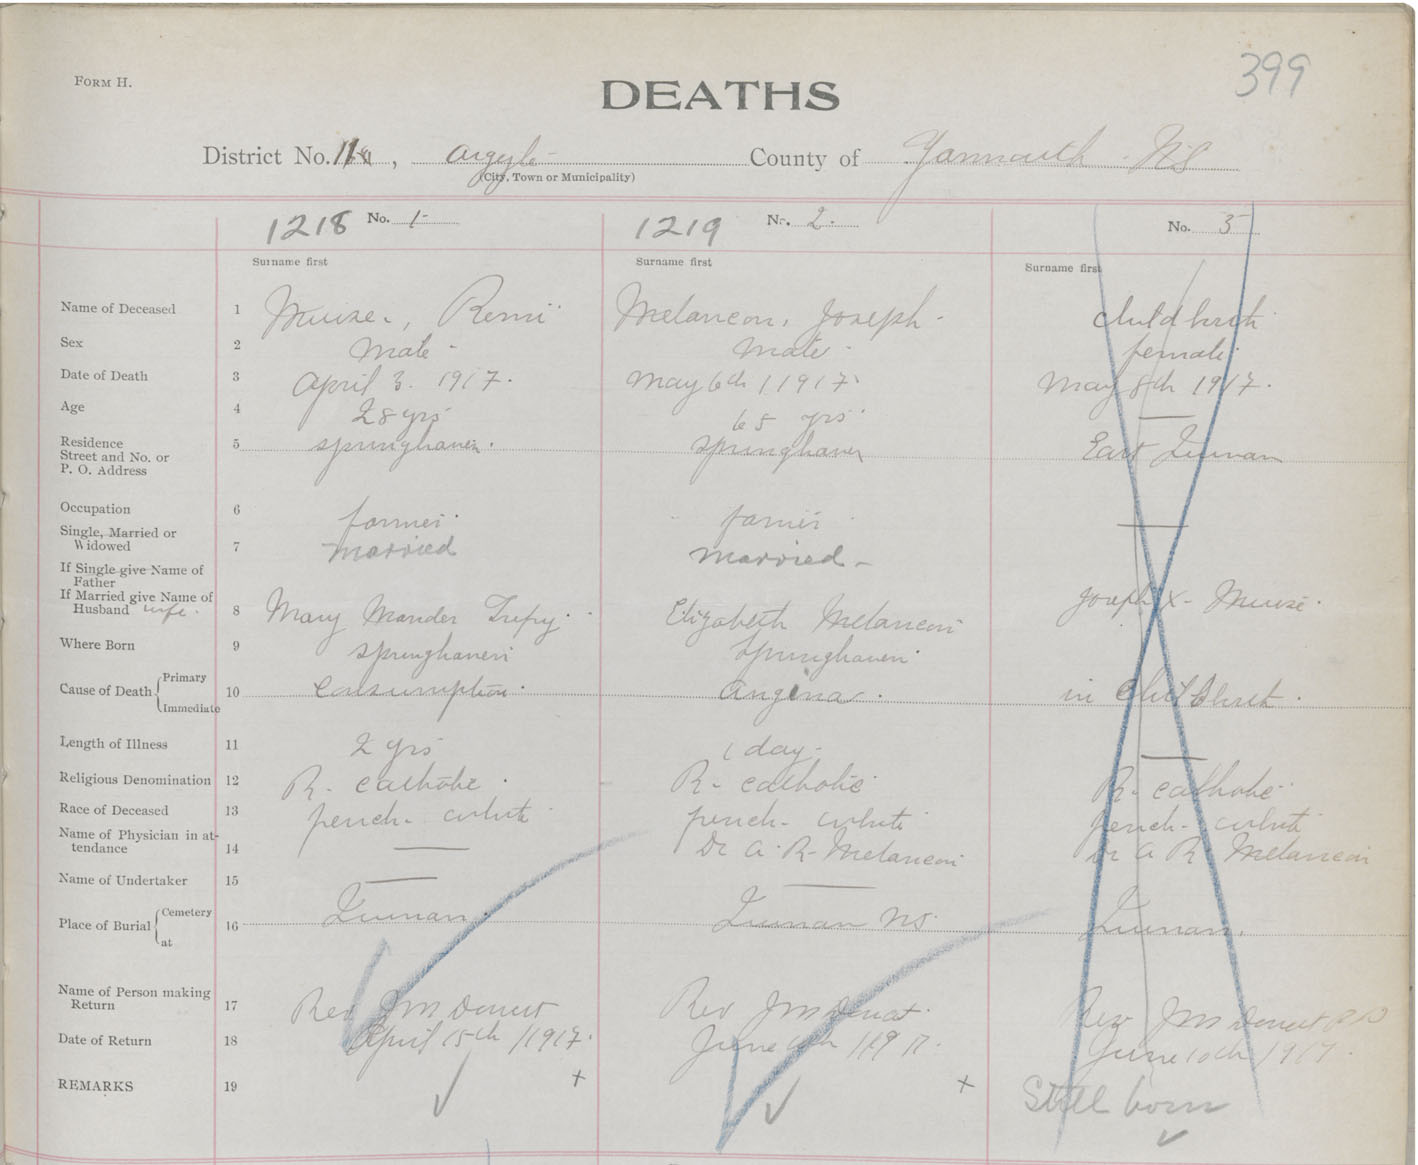 399
FORM H.
DEATHS
District No. 11a, Argyle County of Yarmouth NS
(City, Town or Municipality)
1218 No. 1- 1219 No. 2. No. 3
Surname first Surname first Surname first
Name of Deceased 1 Muise, Remi Melancon, Joseph - child birth
Sex 2 Male - Male - female
Date of Death 3 April 3. 1917. May 6th 1917. May 8th 1917.
Age 4 28 yrs 65 yrs —
Residence 5 Springhaven. Springhaven East Quinan
Street and No. or
P. O. Address
Occupation 6 farmer farmer —
Single, Married or
Widowed 7 married married -
If Single give Name of
Father
If Married give Name of
Husband wife. 8 Mary Elizabeth Melancon Joseph X- Muise.
Where Born 9 Springhaven Springhaven
Cause of Death Primary 10 Consumption. Angina. in Child birth.
Immediate
Length of Illness 11 2 yrs 1 day. —
Religious Denomination 12 R. Catholic. R. Catholic R. Catholic
Race of Deceased 13 french - white french - white french - white
Name of Physician in at-
tendance 14 — Dr A. R. Melancon Dr A R. Melancon
Name of Undertaker 15 — —
Place of Burial Cemetery 16 Quinan. Quinan NS. Quinan.
at
Name of Person making
Return 17 Rev J M Rev J M Rev J M
Date of Return 18 April 15th 1917. June 10th 1917. June 10th 1917.
REMARKS 19 + + Still born